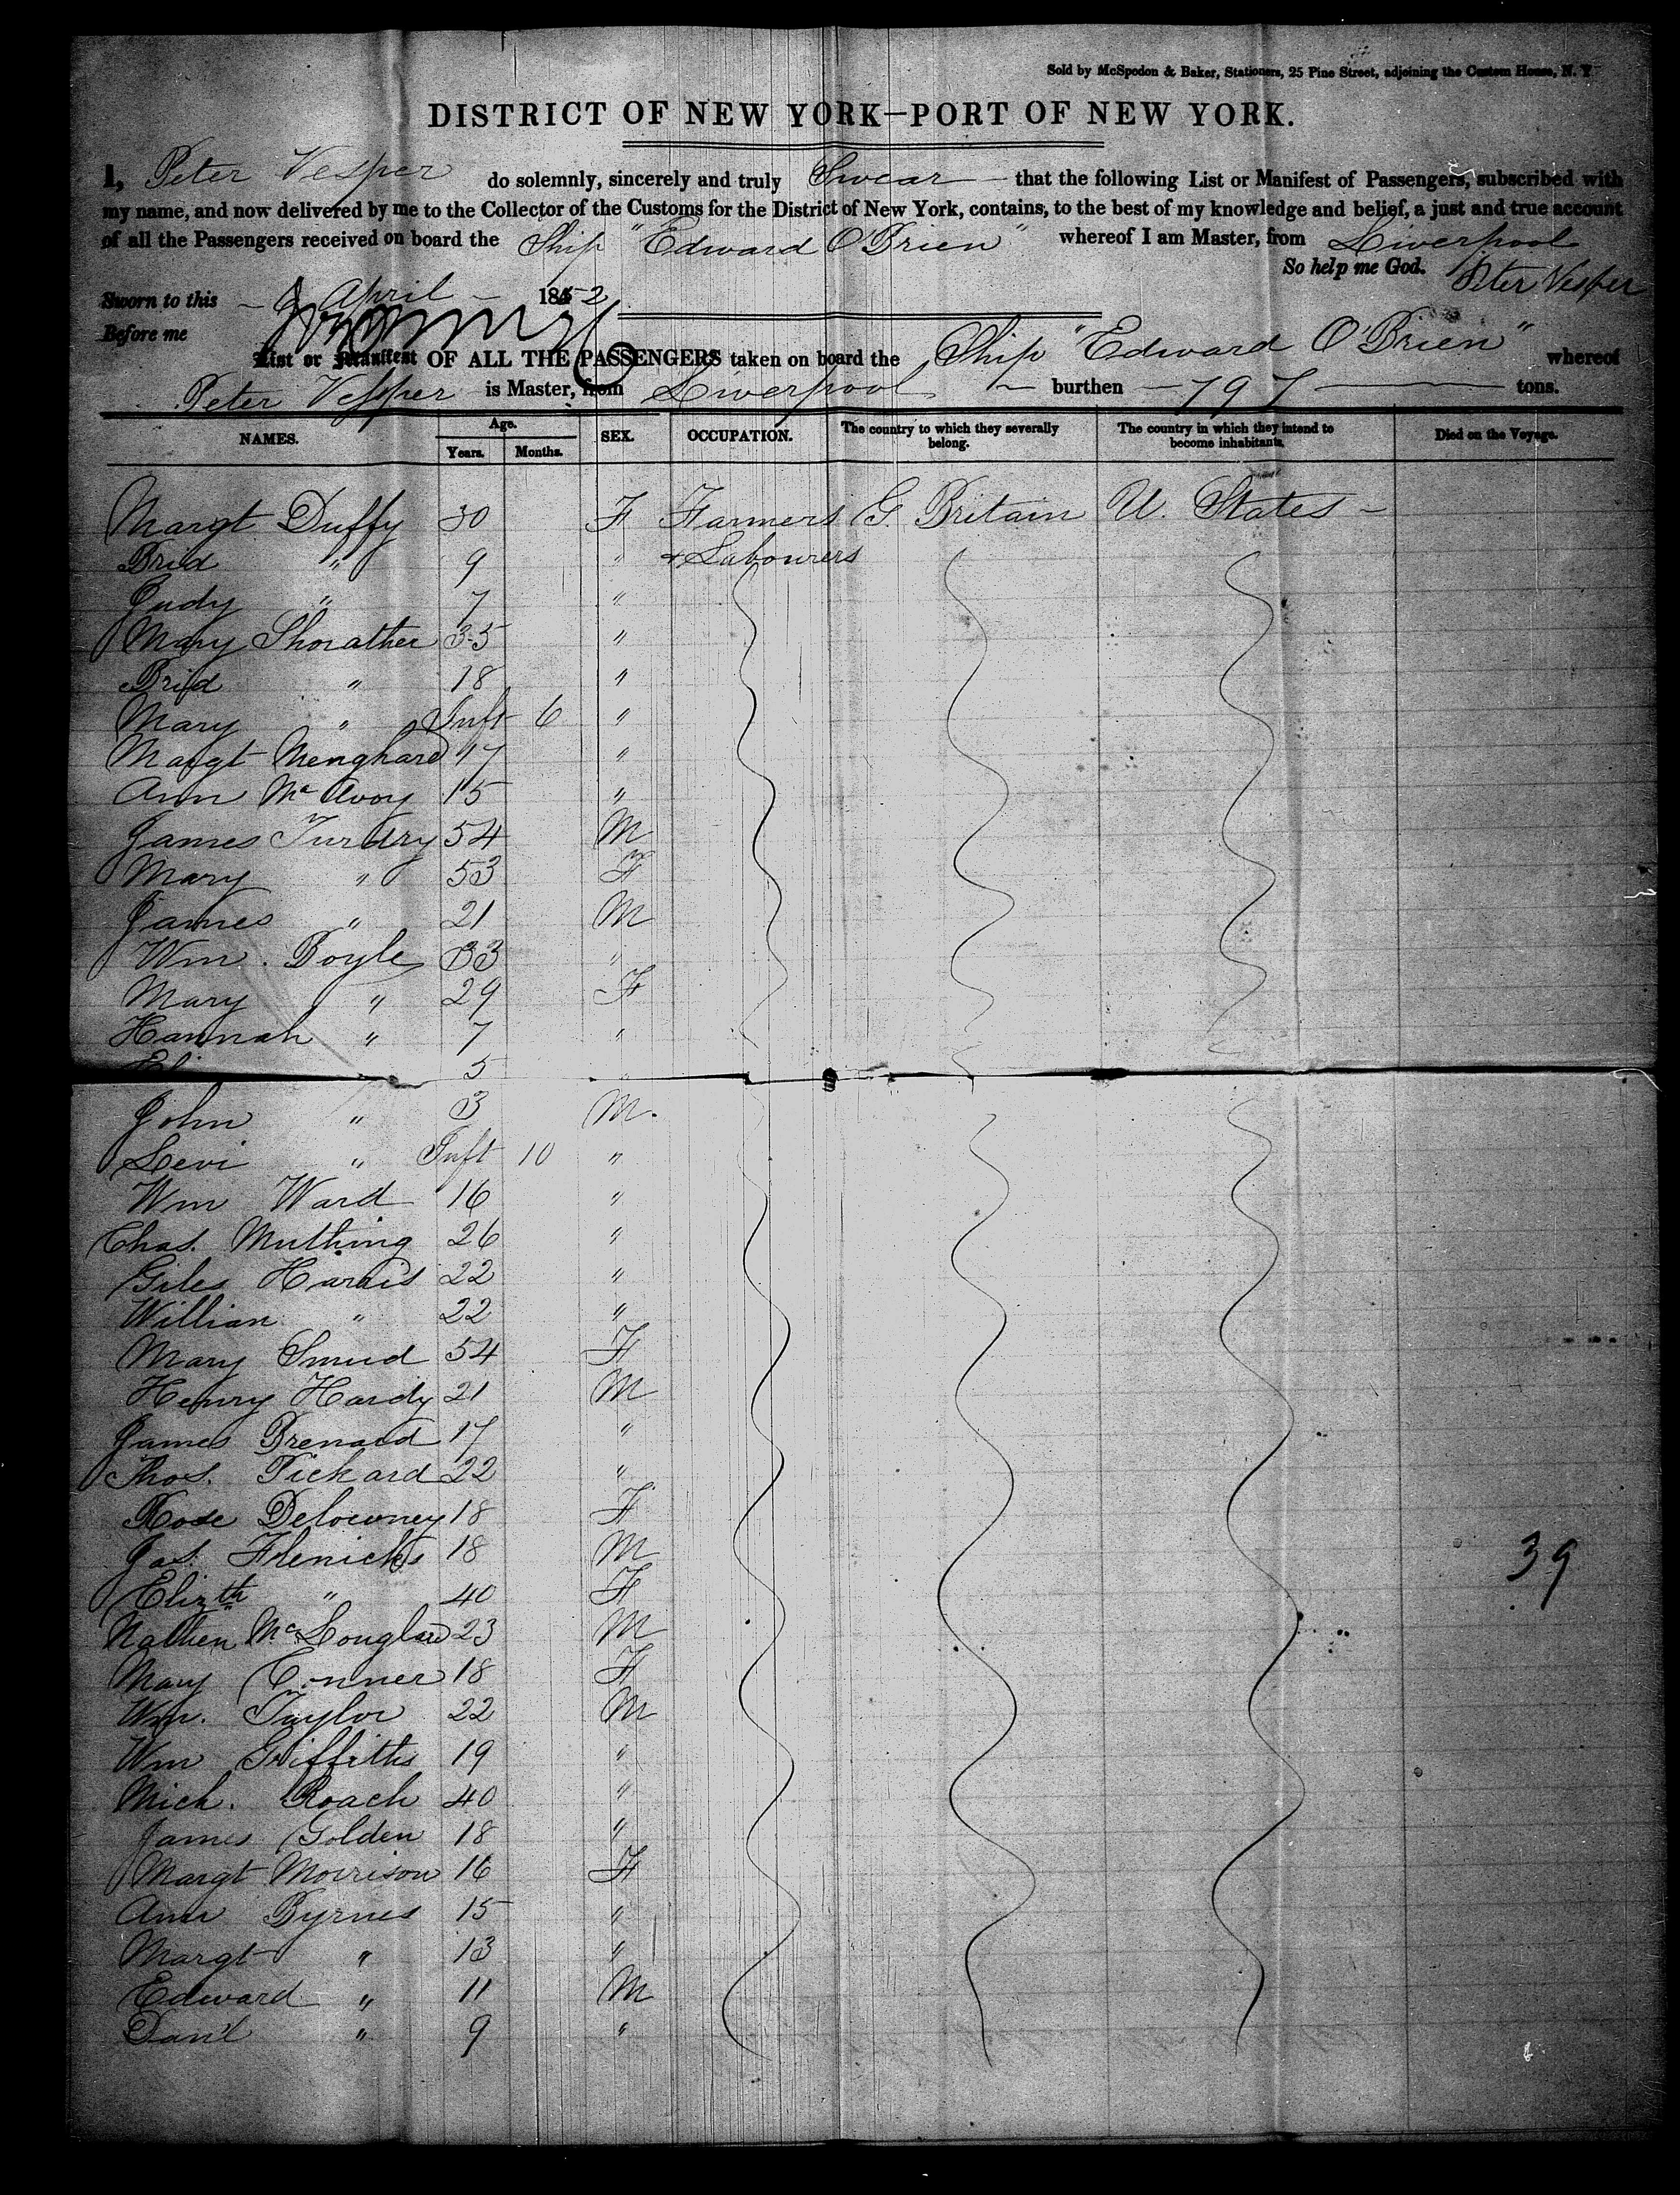 Sold by McSpedon & Baker, Stationers, 25 Pine Street, adjoining the Custom House, N. Y
DISTRICT OF NEW YORK—PORT OF NEW YORK.
I, Peter Vesper do solemnly, sincerely and truly Swear that the following List or Manifest of Passengers, subscribed with
my name, and now delivered by me to the Collector of the Customs for the District of New York, contains, to the best of my knowledge and belief, a just and true account
of all the Passengers received on board the Ship "Edward O'Brien" whereof I am Master, from Liverpool
So help me God. Peter Vesper
Sworn to this April 1852
Before me
List or Manifest OF ALL THE PASSENGERS taken on board the Ship "Edward O'Brien" whereof
Peter Vesper is Master, from Liverpool burthen 797 tons.
NAMES. Age. Years. Months. SEX. OCCUPATION. The country to which they severally belong. The country in which they intend to become inhabitants. Died on the Voyage.
Margt Duffy 30 F Farmers G. Britain U. States
Brid " 9 " & Labourers
Judy " 7 "
Mary Shorather 35 "
Brid " 18 "
Mary " Inft 6 "
Margt 17 "
Ann McAvoy 15 "
James 54 M
Mary " 53 F
James " 21 M
Wm. Boyle 33 "
Mary " 29 F
Hannah " 7 "
5 "
John " 3 M.
Levi " Inft 10 "
Wm Ward 16 "
Chas. Muthing 26 "
Giles Harris 22 "
Willian " 22 "
Mary Smud 54 F
Henry Hardy 21 M
James Brenard 17 "
Thos. Pickard 22 "
Rose Delowney 18 F
Jas. Flenicks 18 M
Elizth " 40 F
Nathen 23 M
Mary Conner 18 F
Wm. Taylor 22 M
Wm Griffiths 19 "
Mich. Roach 40 "
James Golden 18 "
Margt Morrison 16 F
Ann Byrnes 15 "
Margt " 13 "
Edward " 11 M
Dan'l " 9 "
39